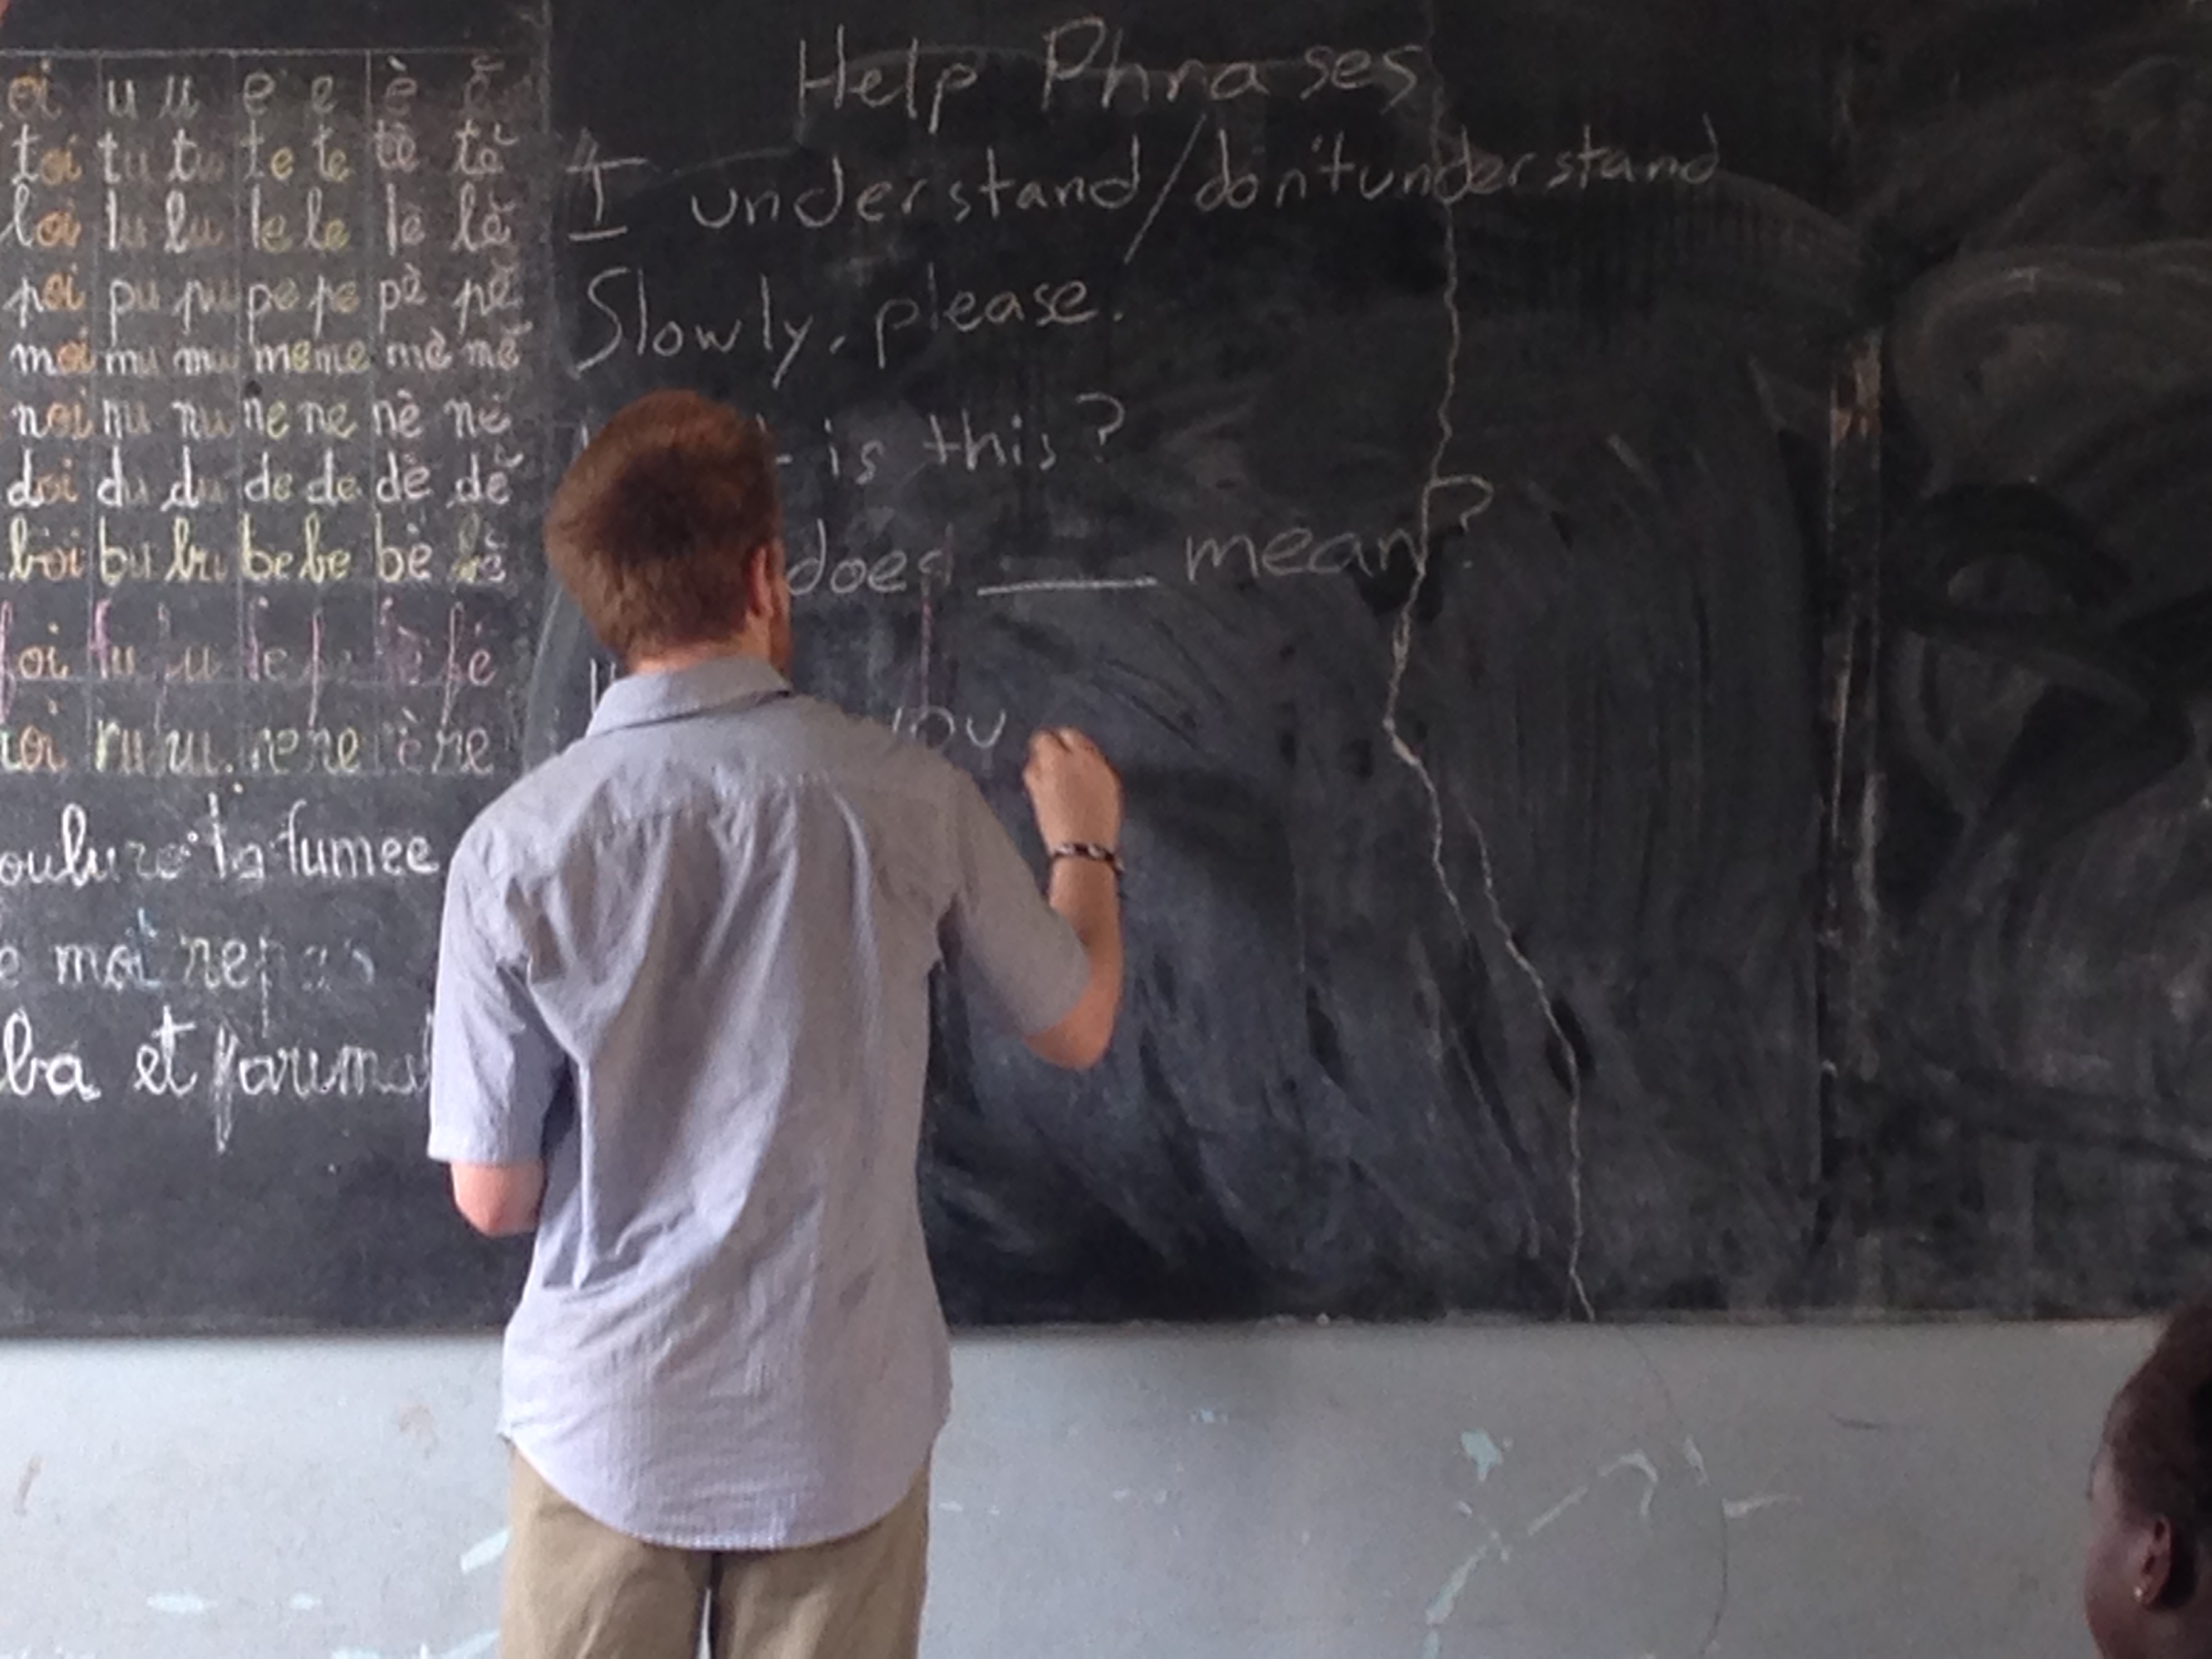 oi u u e e è ê
toi tu tu te te tè tê
loi lu lu le le lè lê
poi pu pu pe pe pè pê
moi mu mu me me mè mê
noi nu nu ne ne nè nê
doi du du de de dè dê
boi bu bu be be bè bê
foi fu fu fe fè fê
roi ru ru re re rè re
la fumee
moi repas
ba et
Help Phrases
I understand/don't understand
Slowly, please.
is this?
does ____ mean?
you